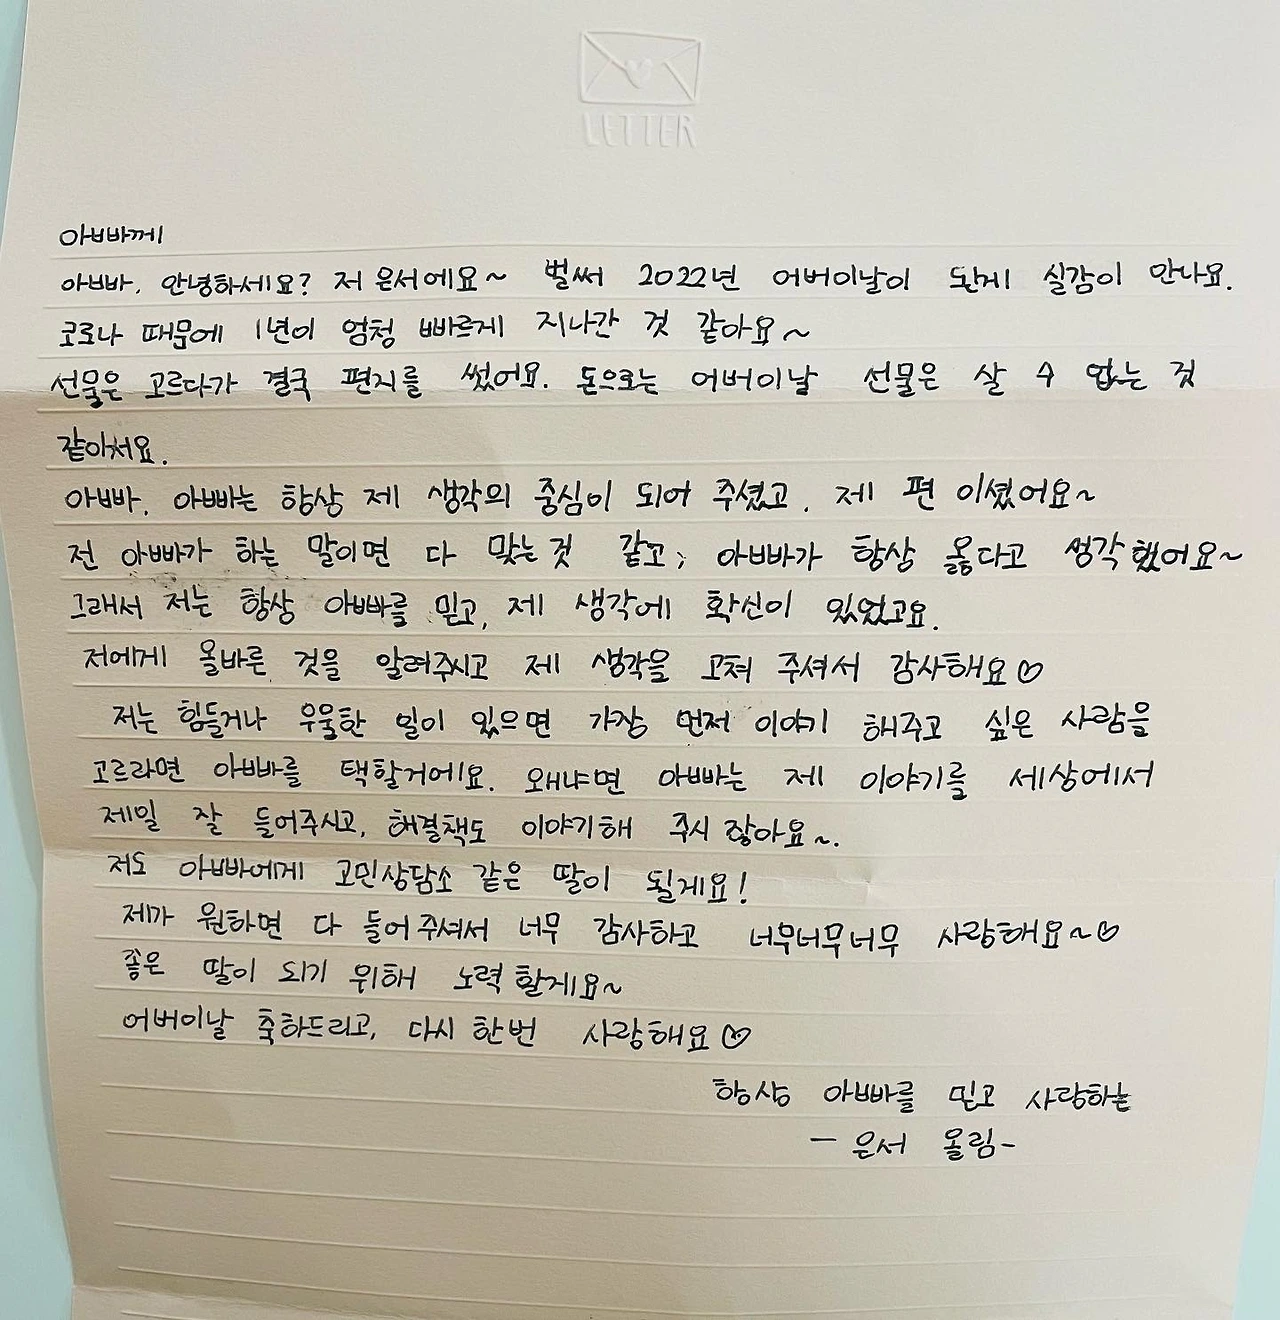 LETTER
아빠께
아빠. 안녕하세요? 저 은서에요~ 벌써 2022년 어버이날이 된게 실감이 안나요.
코로나 때문에 1년이 엄청 빠르게 지나간 것 같아요~
선물은 고르다가 결국 편지를 썼어요. 돈으로는 어버이날 선물은 살 수 없는 것
같아서요.
아빠. 아빠는 항상 제 생각의 중심이 되어 주셨고. 제 편 이셨어요~
전 아빠가 하는 말이면 다 맞는것 같고; 아빠가 항상 옳다고 생각했어요~
그래서 저는 항상 아빠를 믿고, 제 생각에 확신이 있었고요.
저에게 올바른 것을 알려주시고 제 생각을 고쳐 주셔서 감사해요♡
저는 힘들거나 우울한 일이 있으면 가장 먼저 이야기 해주고 싶은 사람을
고르라면 아빠를 택할거에요. 왜냐면 아빠는 제 이야기를 세상에서
제일 잘 들어주시고, 해결책도 이야기해 주시 잖아요~.
저도 아빠에게 고민상담소 같은 딸이 될게요!
제가 원하면 다 들어주셔서 너무 감사하고 너무너무너무 사랑해요~♡
좋은 딸이 되기 위해 노력할게요~
어버이날 축하드리고, 다시 한번 사랑해요♡
항상 아빠를 믿고 사랑하는
- 은서 올림-